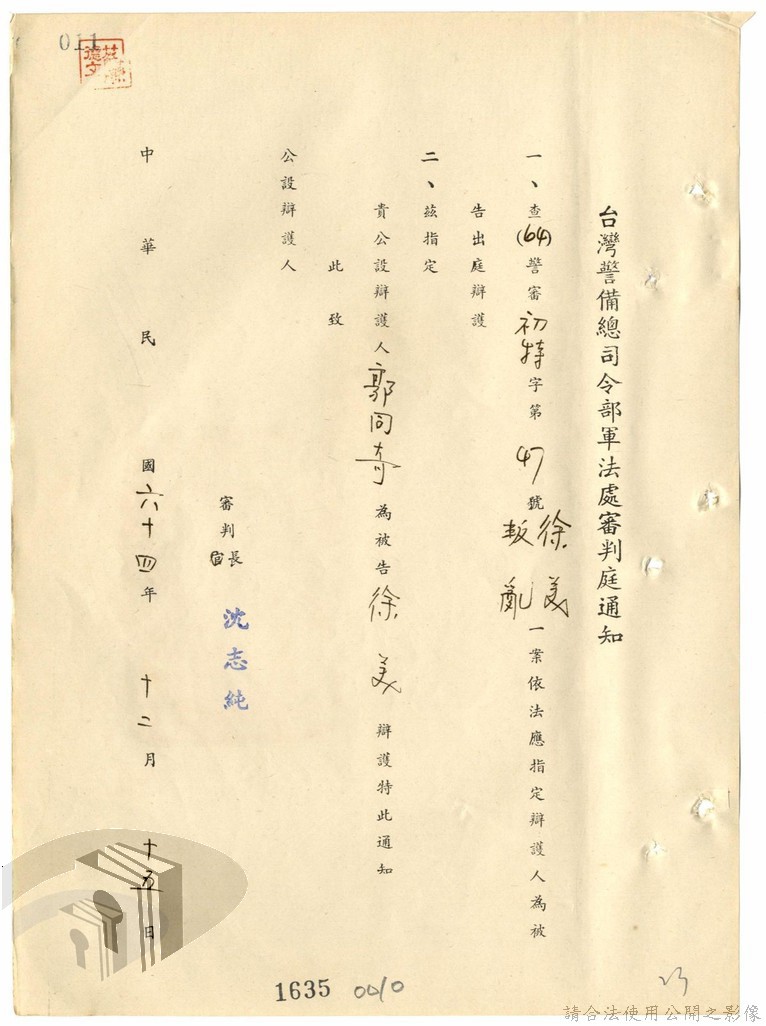 台灣警備總司令部軍法處審判庭通知
一、查(64)警審初特字第47號徐美叛亂一案依法應指定辯護人為被
告出庭辯護
二、茲指定
貴公設辯護人郭同奇為被告徐美辯護特此通知
此致
公設辯護人
審判長
官
沈志純
中華民國六十四年十二月十五日
011
1635 0010
23
請合法使用公開之影像